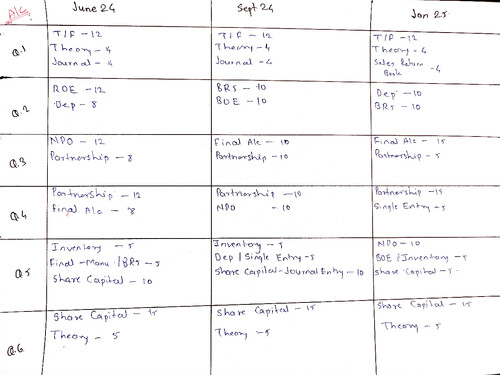 A/c June 24 Sept 24 Jan 25
Q.1
T/F - 12
Theory - 4
Journal - 4
T/F - 12
Theory - 4
Journal - 4
T/F - 12
Theory - 4
Sales Return Book - 4
Q.2
ROE - 12
Dep - 8
BRS - 10
BOE - 10
Dep - 10
BRS - 10
Q.3
NPO - 12
Partnership - 8
Final A/c - 10
Partnership - 10
Final A/c - 15
Partnership - 5
Q.4
Partnership - 12
Final A/c - 8
Partnership - 10
NPO - 10
Partnership - 15
Single Entry - 5
Q5
Inventory - 5
Final - Manu / BRS - 5
Share Capital - 10
Inventory - 5
Dep / Single Entry - 5
Share Capital - Journal Entry - 10
NPO - 10
BOE / Inventory - 5
Share Capital - 5
Q.6
Share Capital - 15
Theory - 5
Share Capital - 15
Theory - 5
Share Capital - 15
Theory - 5